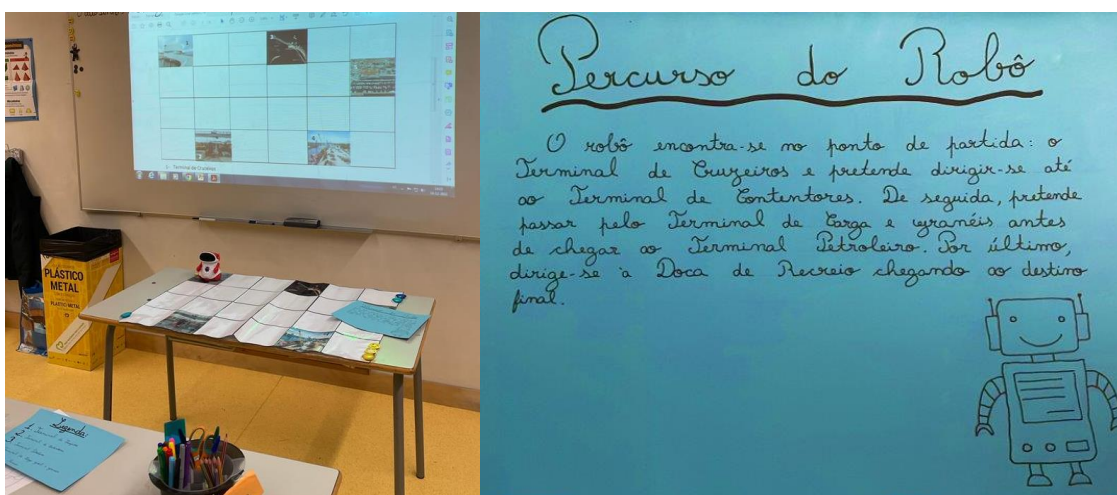 Terminal de Cruzeiros
PLÁSTICO
METAL
PLÁSTICO METAL
Legenda:
1
2
3
Percurso do Robô
O robô encontra-se no ponto de partida: o
Terminal de Cruzeiros e pretende dirigir-se até
ao Terminal de Contentores. De seguida, pretende
passar pelo Terminal de Carga e granéis antes
de chegar ao Terminal Petroleiro. Por último,
dirige-se à Doca de Recreio chegando ao destino
final.